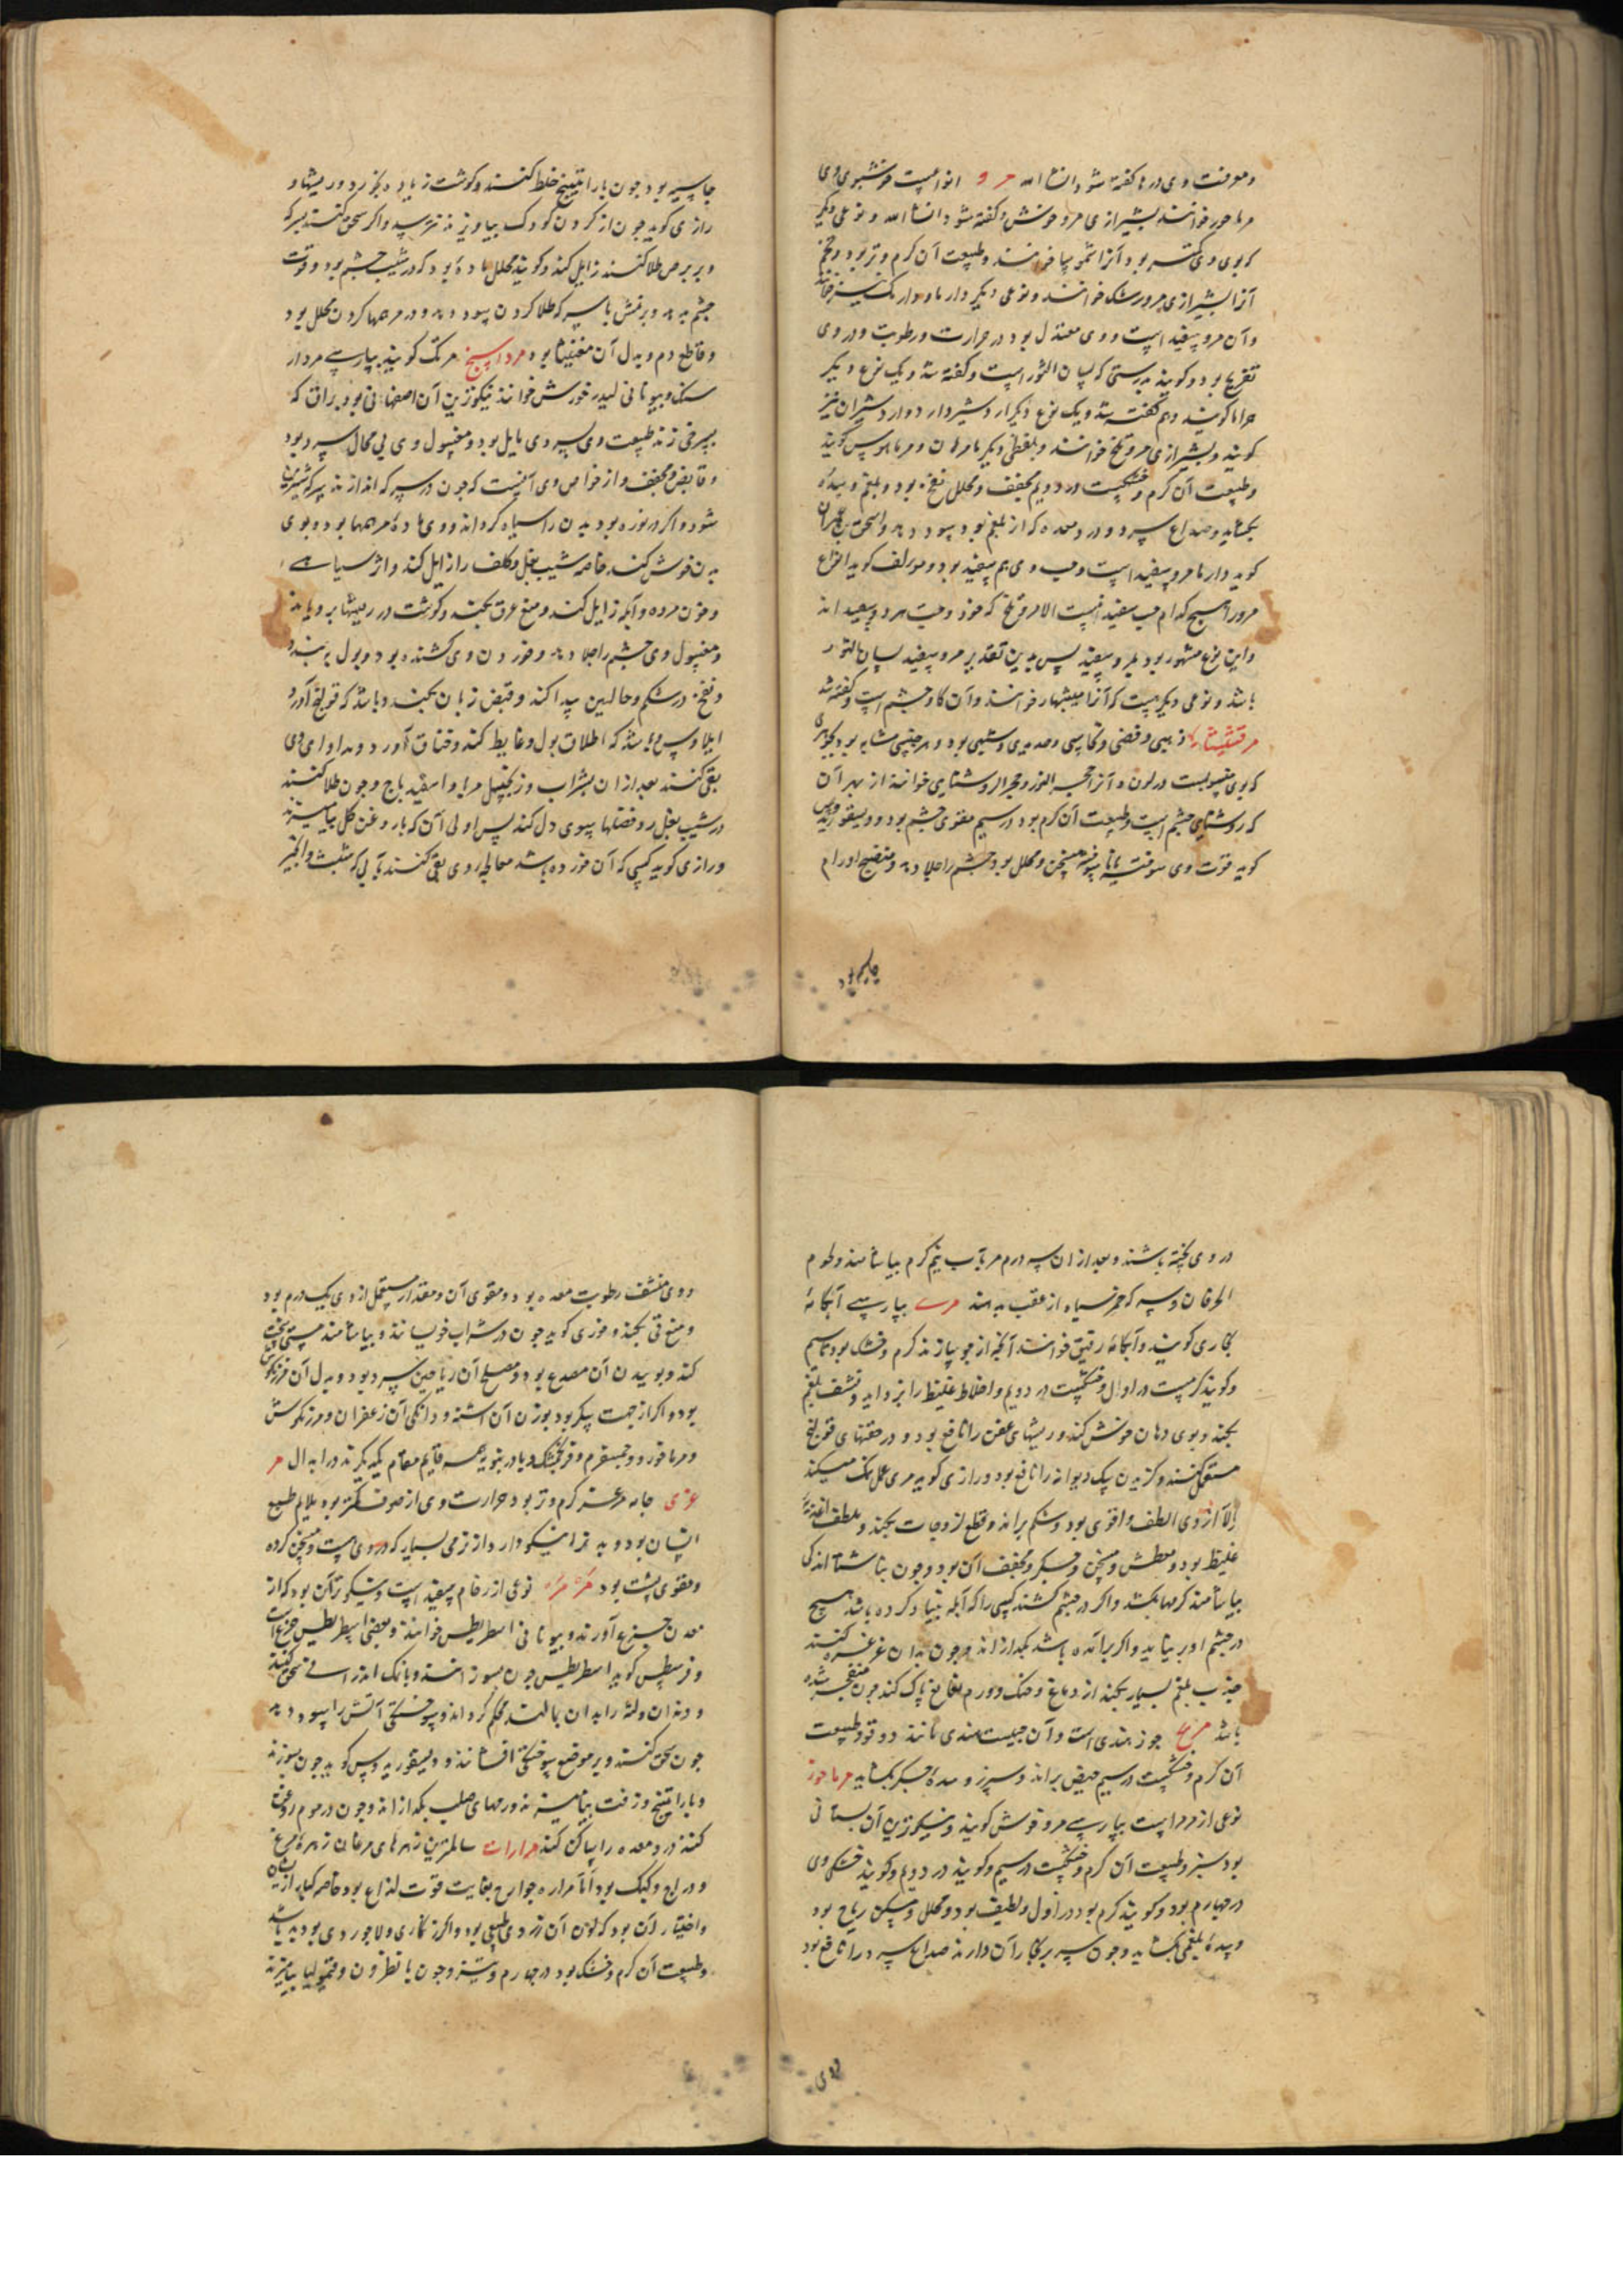 ومعرفت وی در ما کفته شود انشا الله مرو انواعیست خوشبوی وی
مرماحور خوانند بشیرازی مرو خوش و کفته شود انشا الله و نوعی دیکر
که بوی وی کمتر بود آنرا خوانند وطبیعت آن کرم وتر بود وتخم
آنرا بشیرازی مرورشک خوانند ونوعی دیکر دارما ودارمک نیز خوانند
وآن مرو سفید است ووی معتدل بود در حرارت ورطوبت ودر وی
تفریح بود وکویند بدرستی که لسان الثور است وکفته شد ویک نوع دیکر
کویند وهم کفته شد ویک نوع دیکر اردشیردار ودارد شیران نیز
کویند وبشیرازی مرو تلخ خوانند وبلفظی دیکر مامرهان ومرماهوس کویند
وطبیعت آن کرم وخشکست در دویم مجفف ومحلل نفخ بود وبلغم وسده
بکشاید وصداع سرد ودرد معده که از بلغم بود سود دهد واسحق بن عمران
کوید دارما مرو سفید است وحب وی هم سفید بود ومولف کوید انواع
مرو را هیچ کدام حب سفید نیست الا مرو تلخ که خود وحبت هر دو سفید اند
واین نوع مشهور بود بمرو سفید پس بدین تقدیر مرو سفید لسان الثور
باشد ونوعی دیکر هست که آنرا میشبهار خوانند وآن کاوچشم است وکفته شد
مرقشیثا ذهبی وفضی ونحاسی وحدیدی وشبهی بود وهر جنسی مشابه بود بجوهری
که بوی منسوبست در لون وآنرا حجر النور وحجر الروشنایی خوانند از بهر آن
که روشنایی چشم است وطبیعت آن کرم بود در سیم مقوی چشم بود ودیسقوریدوس
کوید قوت وی سوخته یا ناسوخته مسخن ومحلل بود چشم را جلا دهد ومنضج اورام
جاسیه بود
جاسیه بود چون با راتینج خلط کنند وکوشت زیاده بخورد ور یشها و
رازی کوید چون از کردن کودک بیاویزند نترسد واکر سحق کنند بسرکه
وبر برص طلا کنند زایل کند وکویند محلل ماده بود که در شیب چشم بود وقوت
چشم بدهد وبرنمش با سرکه طلا کردن سود دهد ودر مرهمها کردن محلل بود
وقاطع دم وبدل آن مغنیسا بود مرداسنج مرتک کویند بپارسی مردار
سنک وبیونانی لیدرخورش خوانند نیکوترین آن اصفهانی بود براق که
بسرخی زند طبیعت وی بسردی مایل بود ومغسول وی بی محال سرد بود
وقابض ومجفف واز خواص وی آنست که چون در سرکه اندازند سرکه شیرین
شود واکر در نوره بود بدن را سیاه کرداند ووی ماده مرهمها بود وبوی
بدن خوش کند خاصه شیب بغل وکلف را زایل کند واثر سیاهی
وخون مرده وآبله زایل کند ومنع عرق بکند وکوشت در ریشها برویاند
ومغسول وی چشم را جلا دهد وخوردن وی کشنده بود وبول ببندد
ونفخ در شکم وحالبین پیدا کند وقبض زبان بکند وباشد که قولنج آورد
ایلاوس وباشد که اطلاق بول وغایط کند وخناق آورد ومداوای وی
بقی کنند بعد از آن بشراب وزنجبیل مربا واسفیدباج وچون طلا کنند
در شیب بغل رو فضلها بسوی دل کند پس اولی آن که با روغن کل بیامیزند
ورازی کوید کسی که آن خورده باشد معالجه وی بقی کنند بآبی که شبت وانجیر
در وی پخته باشند وبعد از آن سه درم مر بآب نیم کرم بیاشامند ولحوم
الخرفان وسرکه خمر سیاه از عقب بدهند مری بپارسی آبکامه
بخاری کویند وآبکامه رقیق خوانند آنچه از جو سازند کرم وخشک بود تا سیم
وکویند کرمست در اول وخشکست در دویم واخلاط غلیظ را بزداید ونشف بلغم
بکند وبوی دهان خوش کند وریشهای عفن را نافع بود ودر حقنهای قولنج
مستعمل کنند وکزیدن سک دیوانه را نافع بود ورازی کوید مری عمل نمک میکند
الا آنکه از وی الطف واقوی بود وشکم براند وقطع لزوجات بکند وملطف اغذیه
غلیظ بود ومعطش ومسخن جکر ومجفف آن بود وچون بناشتا اندکی
بیاشامند کرمها بکشد واکر در چشم کشند کسی را که آبله بنیاد کرده باشد هیچ
در چشم او بر نیاید واکر برآمده باشد بکدازاند وچون بدان غرغره کنند
جذب بلغم بسیار بکند از دماغ وحنک وورم نغانغ پاک کند چون منفجر شده
باشد جوز هندی است وآن حبیست هندی مانند دوقو وطبیعت
آن کرم وخشکست در سیم حیض براند وسپرز وسده جکر بکشاید مرماحوز
نوعی از مرو است بپارسی مرو خوش کویند ونیکوترین آن بستانی
بود سبز وطبیعت آن کرم وخشکست در سیم وکویند در دویم وکویند خشکی وی
در چهارم بود وکویند کرم بود در اول ولطیف بود ومحلل ومسکن ریاح بود
وسده بلغمی بکشاید وچون سر بر بخار آن دارند صداع سرد را نافع بود
ووی
ووی منشف رطوبت معده بود ومقوی آن ومقدار مستعمل از وی یک درم بود
ومنع قی بکند وخوزی کوید چون در شراب خوسانند وبیاشامند مستی سخت
کند وبوییدن آن مصدع بود ومصلح آن ریاحین سرد بود وبدل آن مرزنکوش
بود واکر از جهت سکر بود بوزن آن اشنه ودانکی آن زعفران ومرزنکوش
ومرماخور وخمسفرم وفرنجمشک وبادرنبویه همه قایم مقام یکدیکرند در ابدال مر
عزی جامه مرعز کرم وتر بود حرارت وی از صوف کمتر بود ملایم طبع
انسان بود وبدنرا نیکو دارد از نرمی بسیار که در وی هست ومسخن کرده
ومقوی پشت بود مرمر نوعی از رخام سفید است ونیکوترآن بود که از
معدن جزع آورند وبیونانی اسطریطس خوانند وبعضی اسطریطیس جزع است
کوید اسطریطیس چون بسوزانند وبا نمک اندرانی سحق کنند
ودندان ولثه را بدان بمالند محکم کرداند وسوختکی آتش را سود دهد
چون سحق کنند وبر موضع سوختکی افشانند ودیسقوریدوس کوید چون بسوزند
وبا راتینج وزفت بیامیزند ورمهای صلب بکدازاند وچون در موم روغن
کنند درد معده را ساکن کند مرارات سالمترین زهرهای مرغان زهره مرغ
ودراج وکبک بود اما مراره جوارح بغایت قوت لذاع بود خاصه کبار از ایشان
واختیار آن بود که لون آن زردی طبیعی بود واکر زنکاری ولاجوردی بود بد باشد
وطبیعت آن کرم وخشک بود در چهارم وتیز وچون با نطرون وقیمولیا بیامیزند